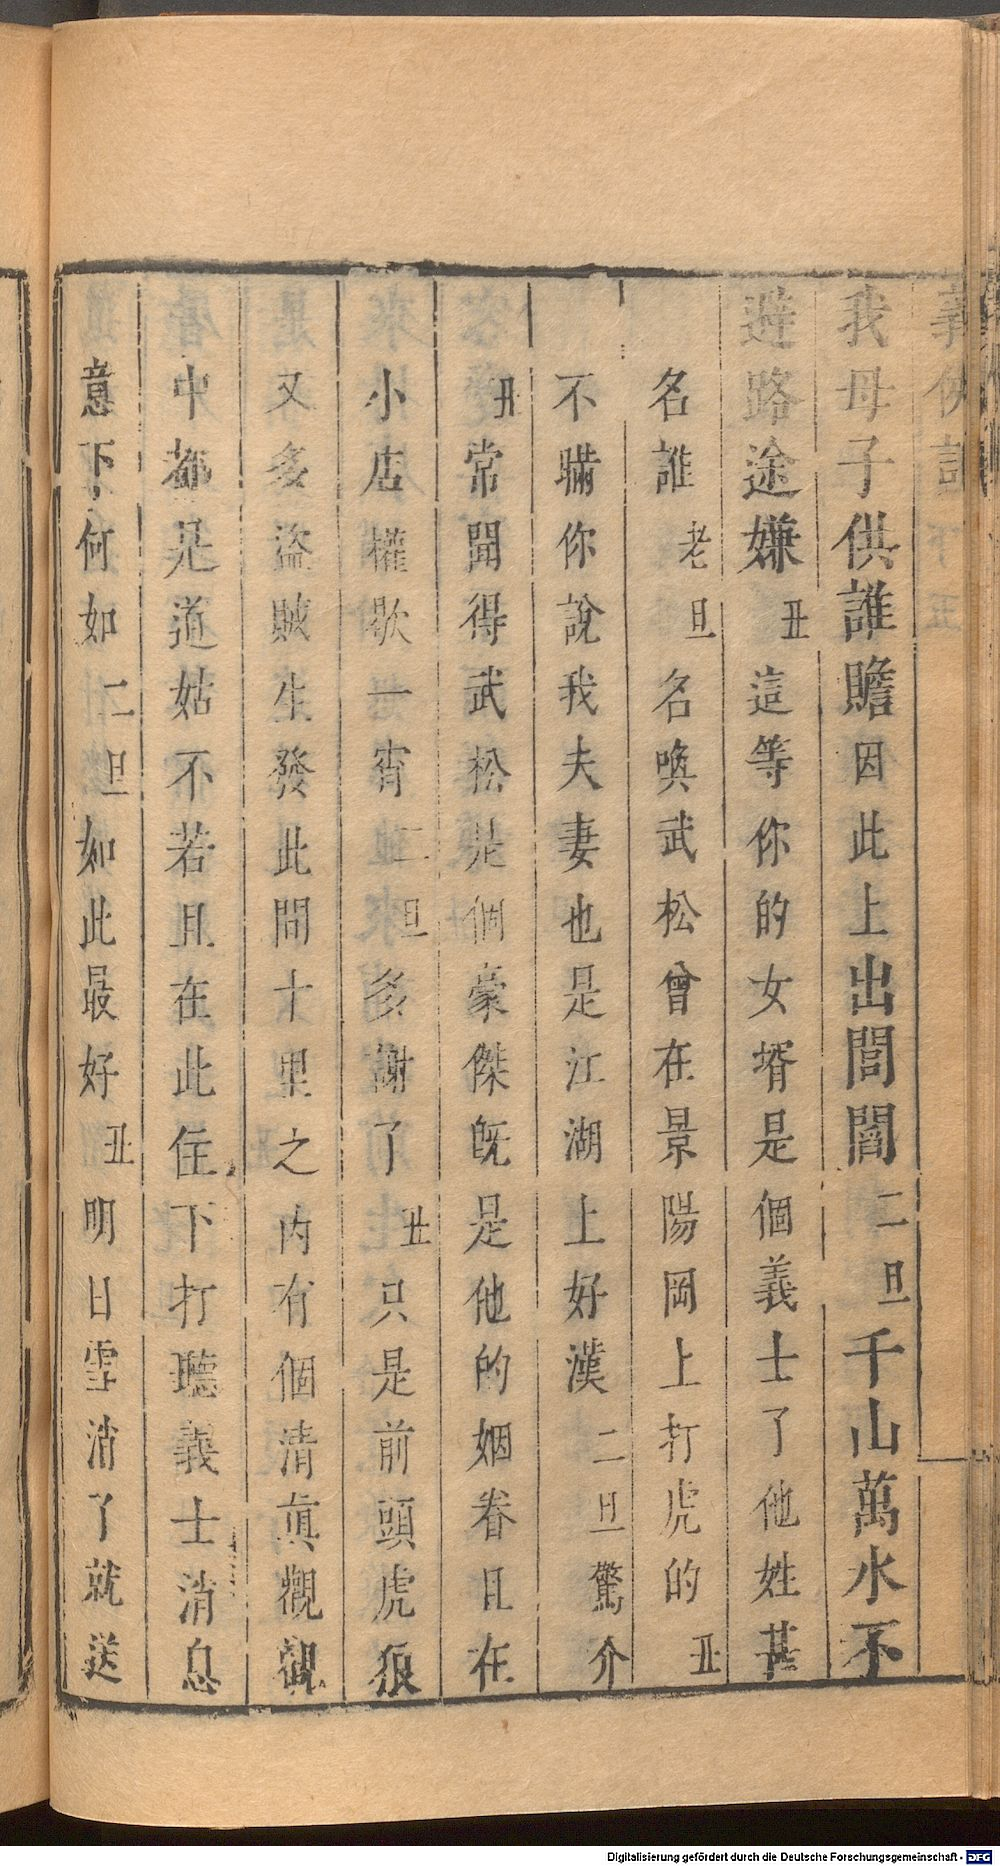 義俠記 下 五
我母子供誰贍因此上出閭閻二旦千山萬水不
避路途嫌丑這等你的女壻是個義士了他姓甚
名誰老旦名喚武松曾在景陽岡上打虎的丑
不瞞你說我夫妻也是江湖上好漢二旦驚介
丑常聞得武松是個豪傑旣是他的姻眷且在
小店權歇一宵二旦多謝了丑只是前頭虎狼
又多盜賊生發此間十里之內有個清眞觀觀
中都是道姑不若且在此住下打聽義士消息
意下何如二旦如此最好丑明日雪消了就送
Digitalisierung gefördert durch die Deutsche Forschungsgemeinschaft - DFG